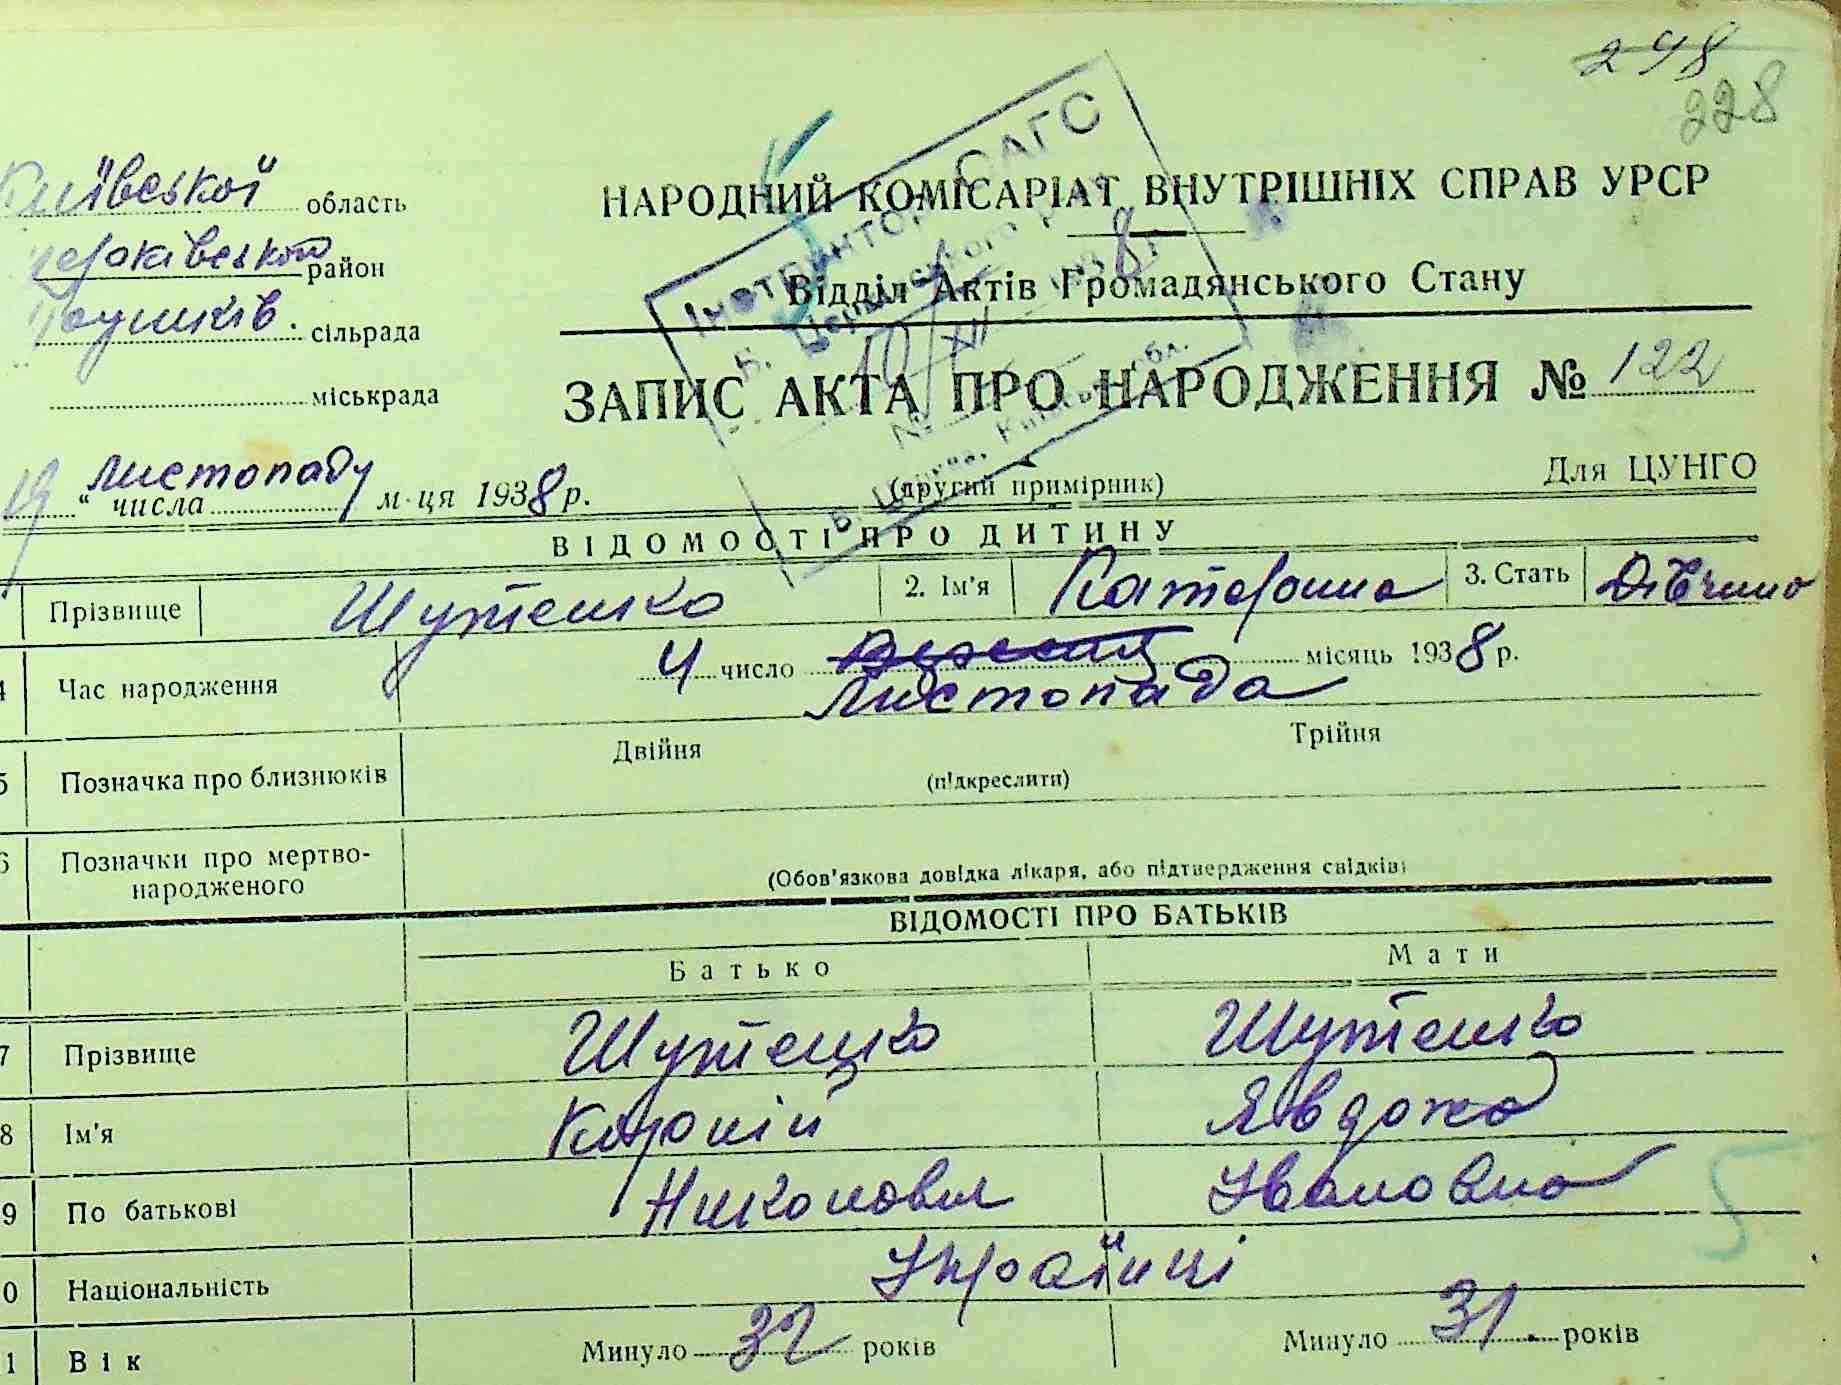 298
228
Київської область
район
сільрада
міськрада
НАРОДНИЙ КОМІСАРІАТ ВНУТРІШНІХ СПРАВ УРСР
Відділ Актів Громадянського Стану
ЗАПИС АКТА ПРО НАРОДЖЕННЯ № 122
19 " числа листопаду м-ця 1938 р.
(другий примірник)
Для ЦУНГО
Інспектор ОАГС
10/XII 8
№
ВІДОМОСТІ ПРО ДИТИНУ
Прізвище Шутенко 2. Ім'я Катерина 3. Стать
4 Час народження 4 число листопада місяць 1938 р.
5 Позначка про близнюків Двійня Трійня
(підкреслити)
6 Позначки про мертво-
народженого
(Обов'язкова довідка лікаря, або підтвердження свідків)
ВІДОМОСТІ ПРО БАТЬКІВ
Батько Мати
7 Прізвище Шутенко Шутенко
8 Ім'я Явдоха
9 По батькові Никонович Івановна
0 Національність Українці
1 Вік Минуло 32 років Минуло 31 років
5